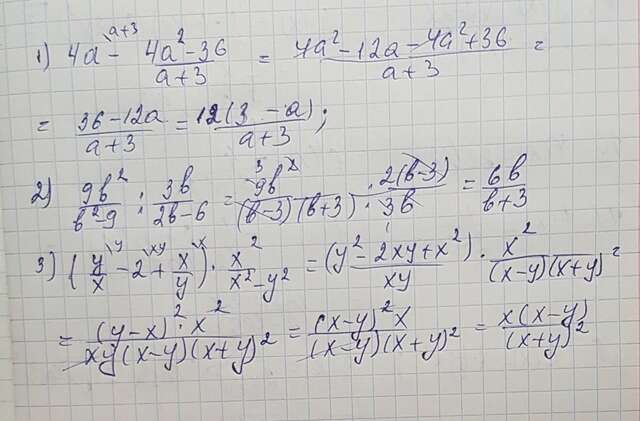 1) 4a^{\a+3} - (4a² - 36)/(a+3) = (4a² - 12a - 4a² + 36)/(a+3) =
= (36 - 12a)/(a+3) = 12(3 - a)/(a+3);
2) 9b²/(b² - 9) : 3b/(2b - 6) = 9b²/((b-3)(b+3)) · 2(b-3)/(3b) = 6b/(b+3)
3) (y/x^{\y} - 2^{\xy} + x/y^{\x}) · x²/(x² - y²) = (y² - 2xy + x²)/(xy) · x²/((x-y)(x+y)² =
= (y-x)² · x²/(xy(x-y)(x+y)² = (x-y)² x/((x-y)(x+y)² = x(x-y)/(x+y)²